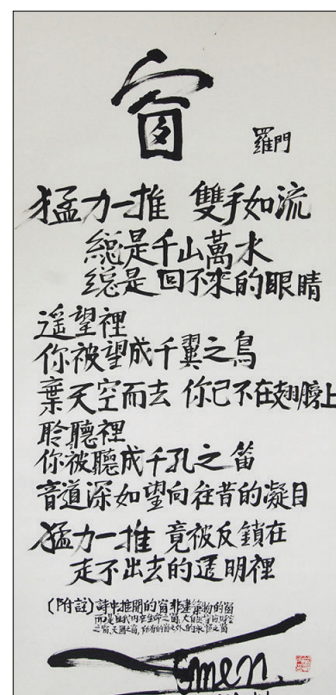 窗
羅門
猛力一推 雙手如流
總是千山萬水
總是回不來的眼睛
遥望裡
你被望成千翼之鳥
棄天空而去 你已不在翅膀上
聆聽裡
你被聽成千孔之笛
音道深如望向往昔的凝目
猛力一推 竟被反鎖在
走不出去的透明裡
(附註)詩中推開的窗非建築物的窗